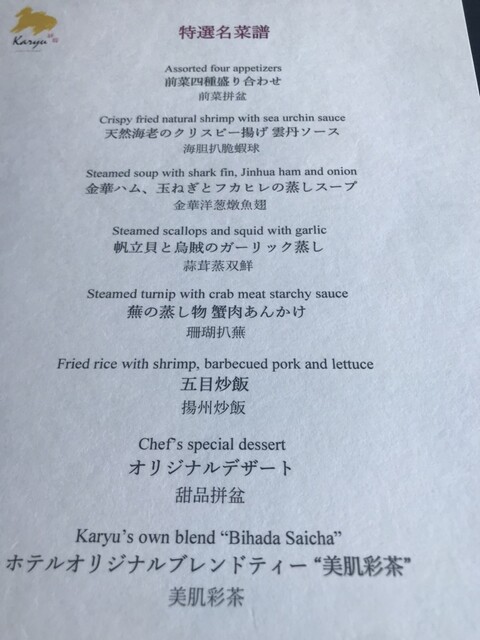 Karyu
特選名菜譜
Assorted four appetizers
前菜四種盛り合わせ
前菜拼盆
Crispy fried natural shrimp with sea urchin sauce
天然海老のクリスピー揚げ 雲丹ソース
海胆扒脆蝦球
Steamed soup with shark fin, Jinhua ham and onion
金華ハム、玉ねぎとフカヒレの蒸しスープ
金華洋葱燉魚翅
Steamed scallops and squid with garlic
帆立貝と烏賊のガーリック蒸し
蒜茸蒸双鮮
Steamed turnip with crab meat starchy sauce
蕪の蒸し物 蟹肉あんかけ
珊瑚扒蕪
Fried rice with shrimp, barbecued pork and lettuce
五目炒飯
揚州炒飯
Chef's special dessert
オリジナルデザート
甜品拼盆
Karyu's own blend “Bihada Saicha”
ホテルオリジナルブレンドティー “美肌彩茶”
美肌彩茶